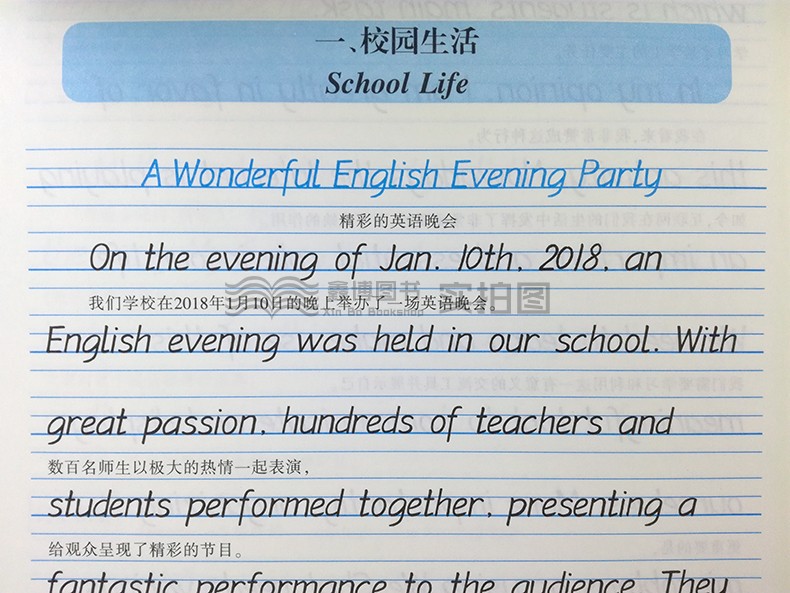 一、校园生活
School Life
A Wonderful English Evening Party
精彩的英语晚会
On the evening of Jan. 10th, 2018, an
我们学校在2018年1月10日的晚上举办了一场英语晚会。
鑫博图书 实拍图
Xin Bo Bookshop
English evening was held in our school. With
great passion, hundreds of teachers and
数百名师生以极大的热情一起表演，
students performed together, presenting a
给观众呈现了精彩的节目。
fantastic performance to the audience. They